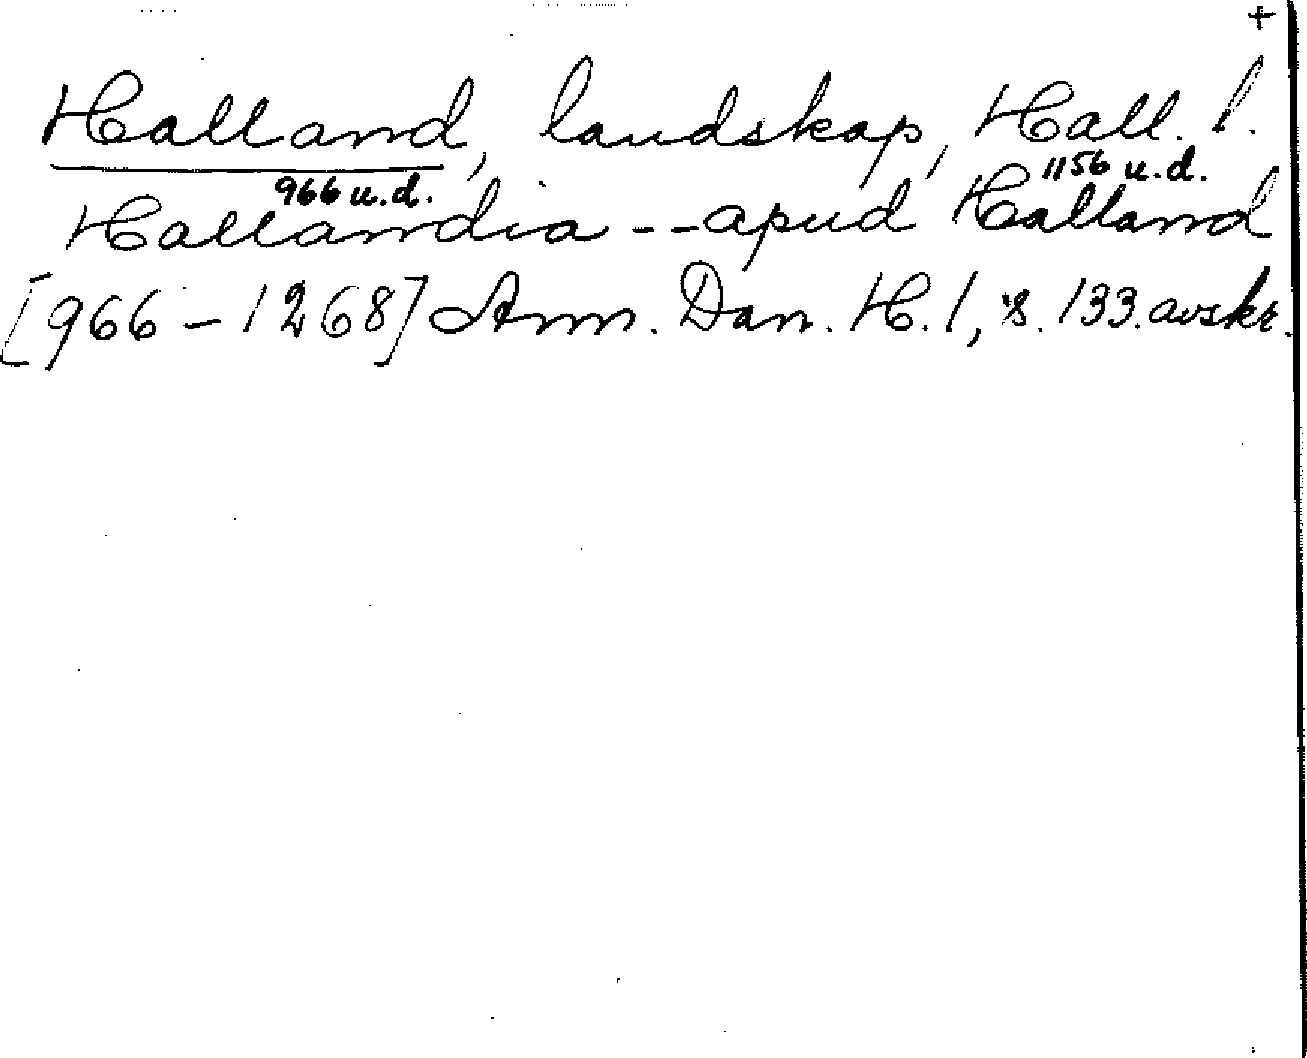 +
Halland, landskap, Hall. l.
966 u.d. 1156 u.d.
Hallandia -- apud Halland
[966-1268] Ann. Dan. H. 1, s. 133. avskr.